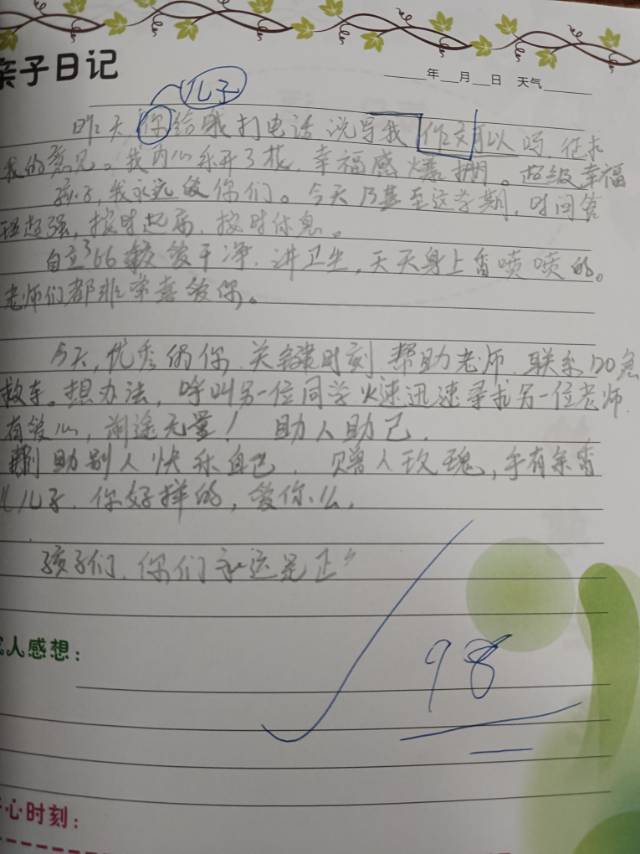 亲子日记
年 月 日 天气
儿子
昨天你给我打电话说写我作文可以吗,征求
我的意见。我内心乐开了花,幸福感爆棚。超级幸福
孩子,我永远爱你们。今天乃至这学期,时间管
理超强,按时起床,按时休息。
自立 爱干净,讲卫生,天天身上香喷喷的。
老师们都非常喜爱你。
今天,优秀的你,关键时刻帮助老师,联系120急
救车。想办法,呼叫另一位同学火速迅速寻找另一位老师.
有爱心,前途无量!助人助己.
帮助别人快乐自己.赠人玫瑰,手有余香
儿子.你好样的,爱你.
孩子们.你们永远是正
98
人感想:
心时刻: